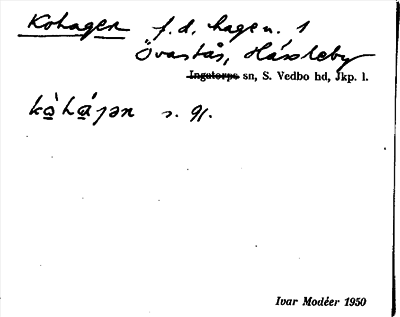 Kohagen f.d. hage u. 1
Övastås, Hässleby
Ingatorps sn, S. Vedbo hd, Jkp. l.
kò̱há̱jən s. 91.
Ivar Modéer 1950